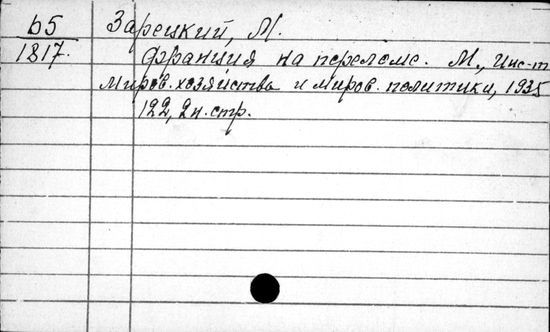 b5 Зарецкий, М.
1817. Франция на переломе. М., Инс-т
миров. хозяйства и миров. политики, 1935
122, 2н. стр.